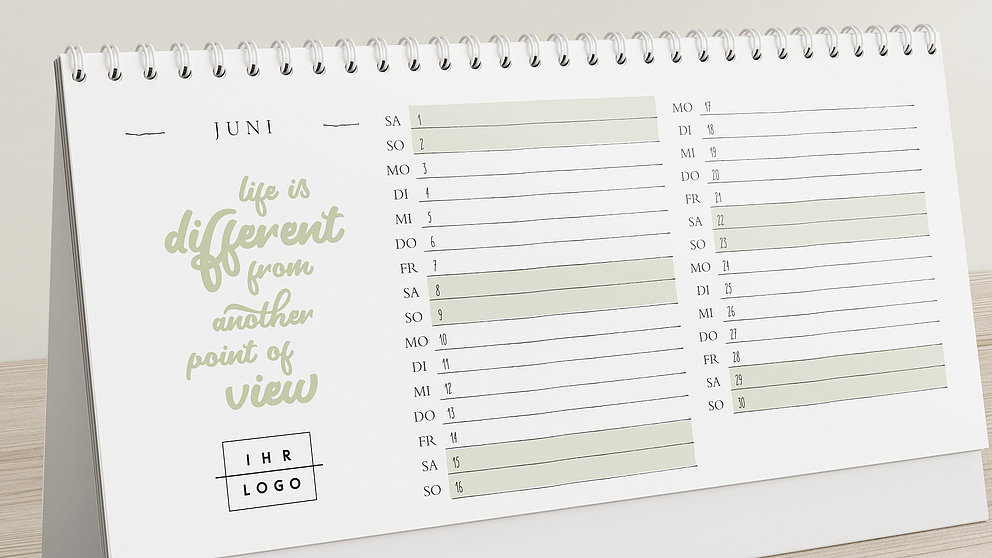 JUNI
life is
different
from
another
point of
view
IHR
LOGO
SA 1
SO 2
MO 3
DI 4
MI 5
DO 6
FR 7
SA 8
SO 9
MO 10
DI 11
MI 12
DO 13
FR 14
SA 15
SO 16
MO 17
DI 18
MI 19
DO 20
FR 21
SA 22
SO 23
MO 24
DI 25
MI 26
DO 27
FR 28
SA 29
SO 30